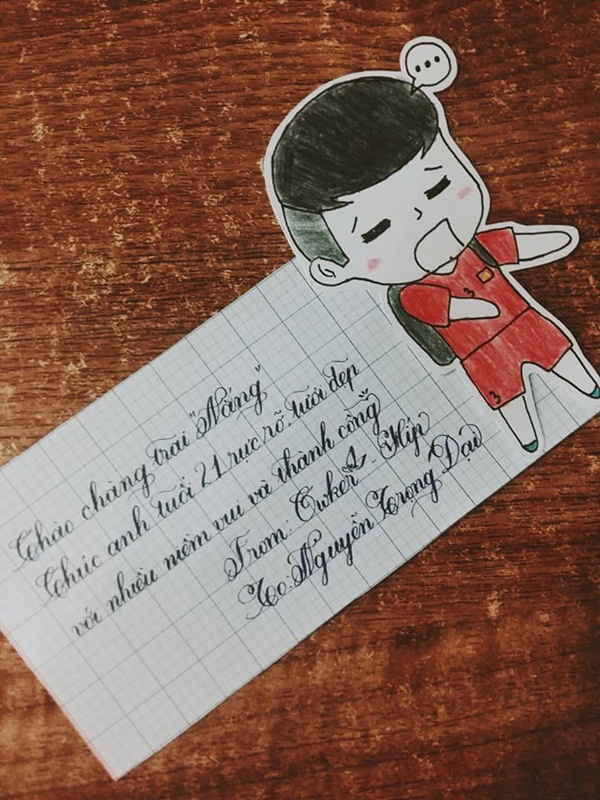 ...
3
3
Chào chàng trai "Nắng"
Chúc anh tuổi 21 rực rỡ, tươi đẹp
với nhiều niềm vui và thành công
From: - Híp
To: Nguyễn Trọng Đại